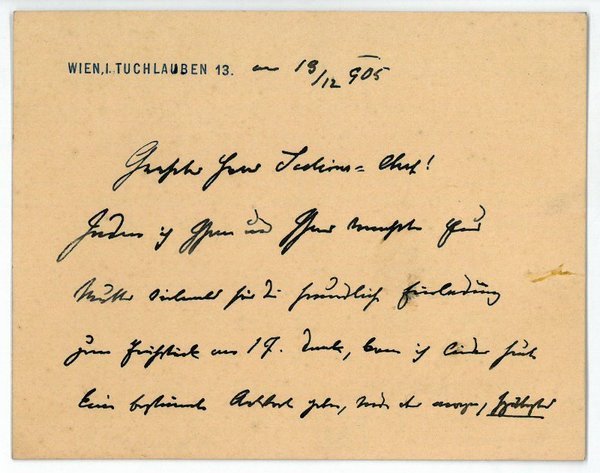 WIEN, I. TUCHLAUBEN 13. am 13/12 905
Geehrter Herr Sections-Chef!
Indem ich Ihnen und Ihrer Frau
Mutter vielmals für die freundliche Einladung
zum Frühstück am 17. danke, kann ich leider heute
keine bestimmte Antwort geben, werde aber morgen, spätestens